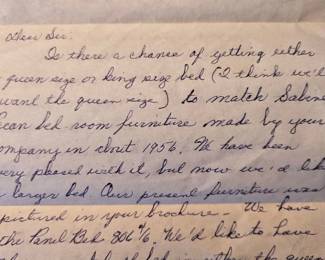 Dear Sir:
Is there a chance of getting either
queen size or king size bed (I think we'll
want the queen size) to match Sabine
ean bed room furniture made by your
ompany in about 1956. We have been
ery pleased with it, but now we'd like
larger bed Our present furniture was
pictured in your brochure - We have
the Panel Bed 806 1/6. We'd like to have
either the queen